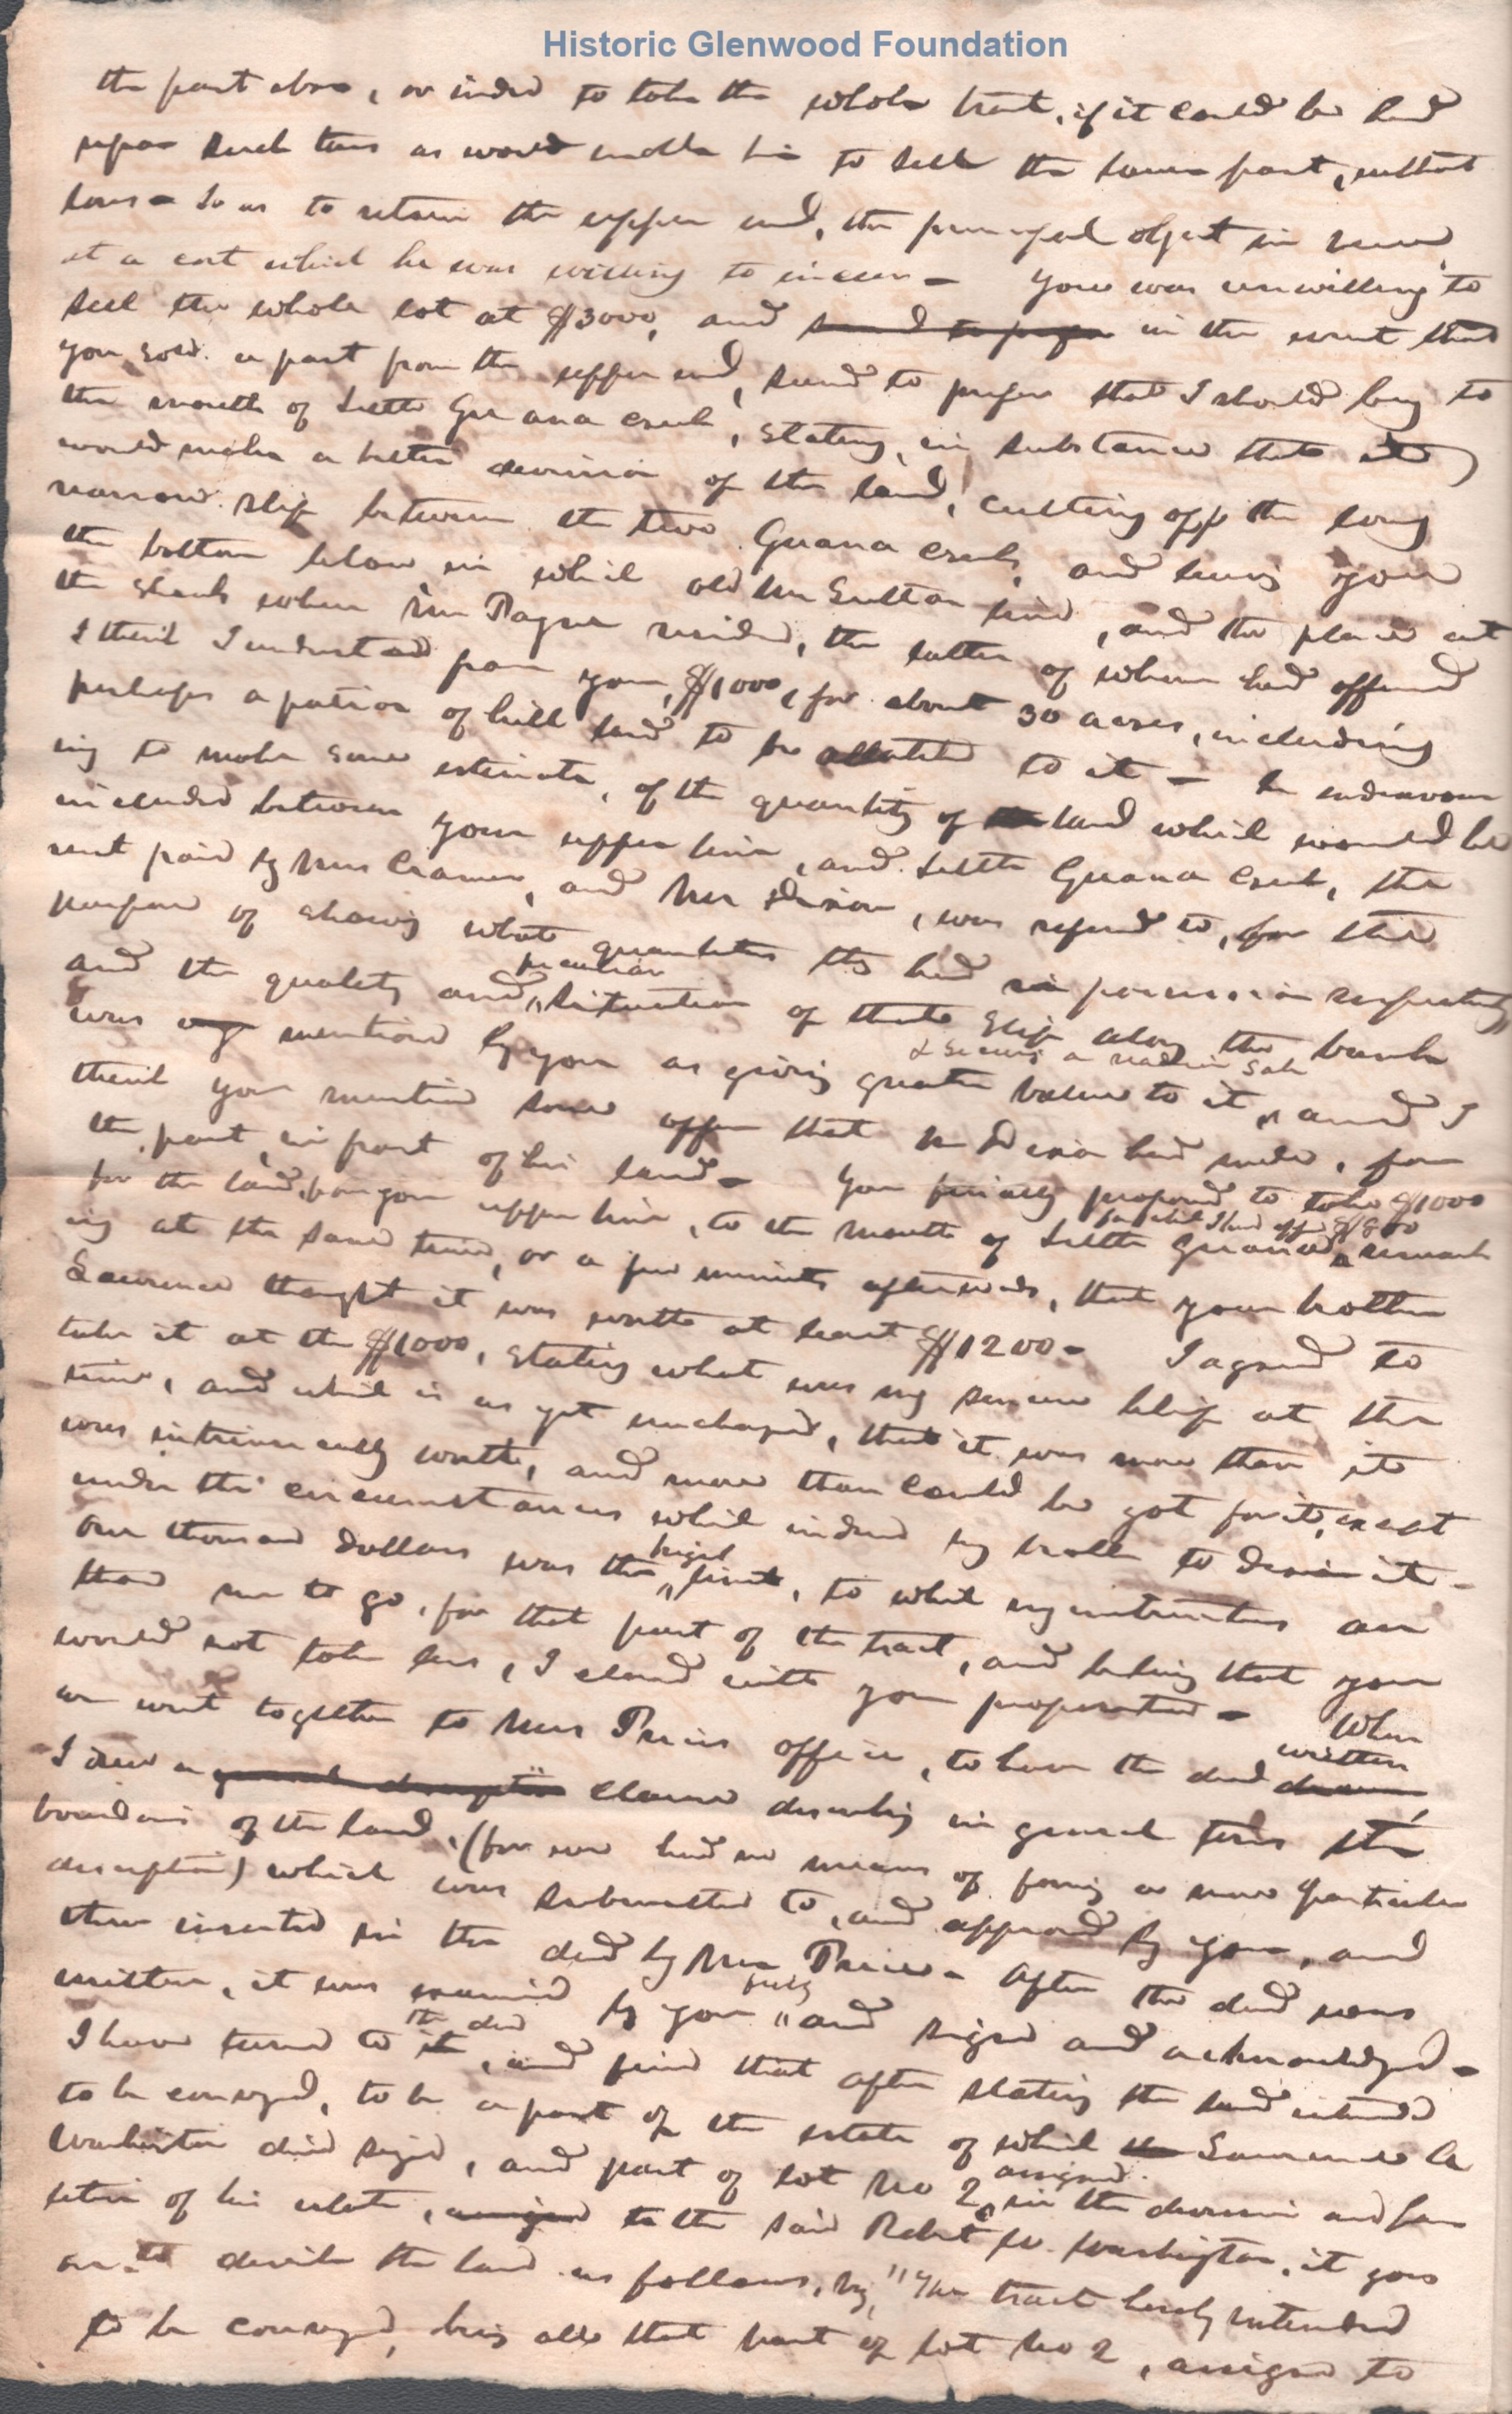 Historic Glenwood Foundation
the part above, or indeed to take the whole tract, if it could be had
upon such terms as would enable him to sell the lower part, without
loss - so as to retain the upper end, the principal object in view,
at a cost which he was willing to incur - You was unwilling to
sell the whole lot at $3000, and in the event that
you sold a part from the upper end, seemed to prefer that I should buy to
the mouth of Little Guana creek, stating, in substance that it
would make a better division of the land, cutting off the long
narrow slip between the two Guana creeks, and leaving you
the bottom below in which old Mr Sutton lived, and the place at
the shoals where Mr Ragne resided, the latter of whom had offered
I think I understood from you, $1000, for about 30 acres, including
perhaps a portion of hill land to be allotted to it - In endeavour
ing to make some estimate, of the quantity of land which would be
included between your upper line, and Little Guana Creek, the
rent paid by Mr Cramer, and Mr Dixon, was referred to, for the
purpose of showing what quantities they had in possession respectively
and the quality and peculiar situation of that slip along the bank
was mentioned by you as giving greater value to it, & securing a readier sale and I
think you mentioned some offer that Mr Dixon had made, for
the part in front of his land - You finally proposed to take $1000
for the land, from your upper line, to the mouth of Little Guana, for which I had offered $800 remark
ing at the same time, or a few minutes afterwards, that your brother
Lawrence thought it was worth at least $1200 - I agreed to
take it at the $1000, stating what was my sincere belief at the
time, and which is as yet unchanged, that it was more than it
was intrinsically worth, and more than could be got for it, except
under the circumstances which induced my brother to desire it -
One thousand dollars was the limit, to which my instructions au
thorised me to go, for that part of the tract, and believing that you
would not take less, I closed with your proposition - When
we went together to Mr Price's office, to have the deed written
I drew a clause describing in general terms the
boundaries of the land, (for we had no means of forming a more particular
description) which was submitted to, and approved by you, and
then inserted in the deed by Mr Price - After the deed was
written, it was examined by you fully and signed and acknowledged -
I have turned to the deed, and find that after stating the land intended
to be conveyed, to be a part of the estate of which Lawrence A
Washington died seized, and part of Lot No 2 assigned in the division and par
tition of his estate, to the said Robt W. Washington, it goes
on to describe the land as follows, viz, "The tract hereby intended
to be conveyed, being all that part of lot No 2, assigned to